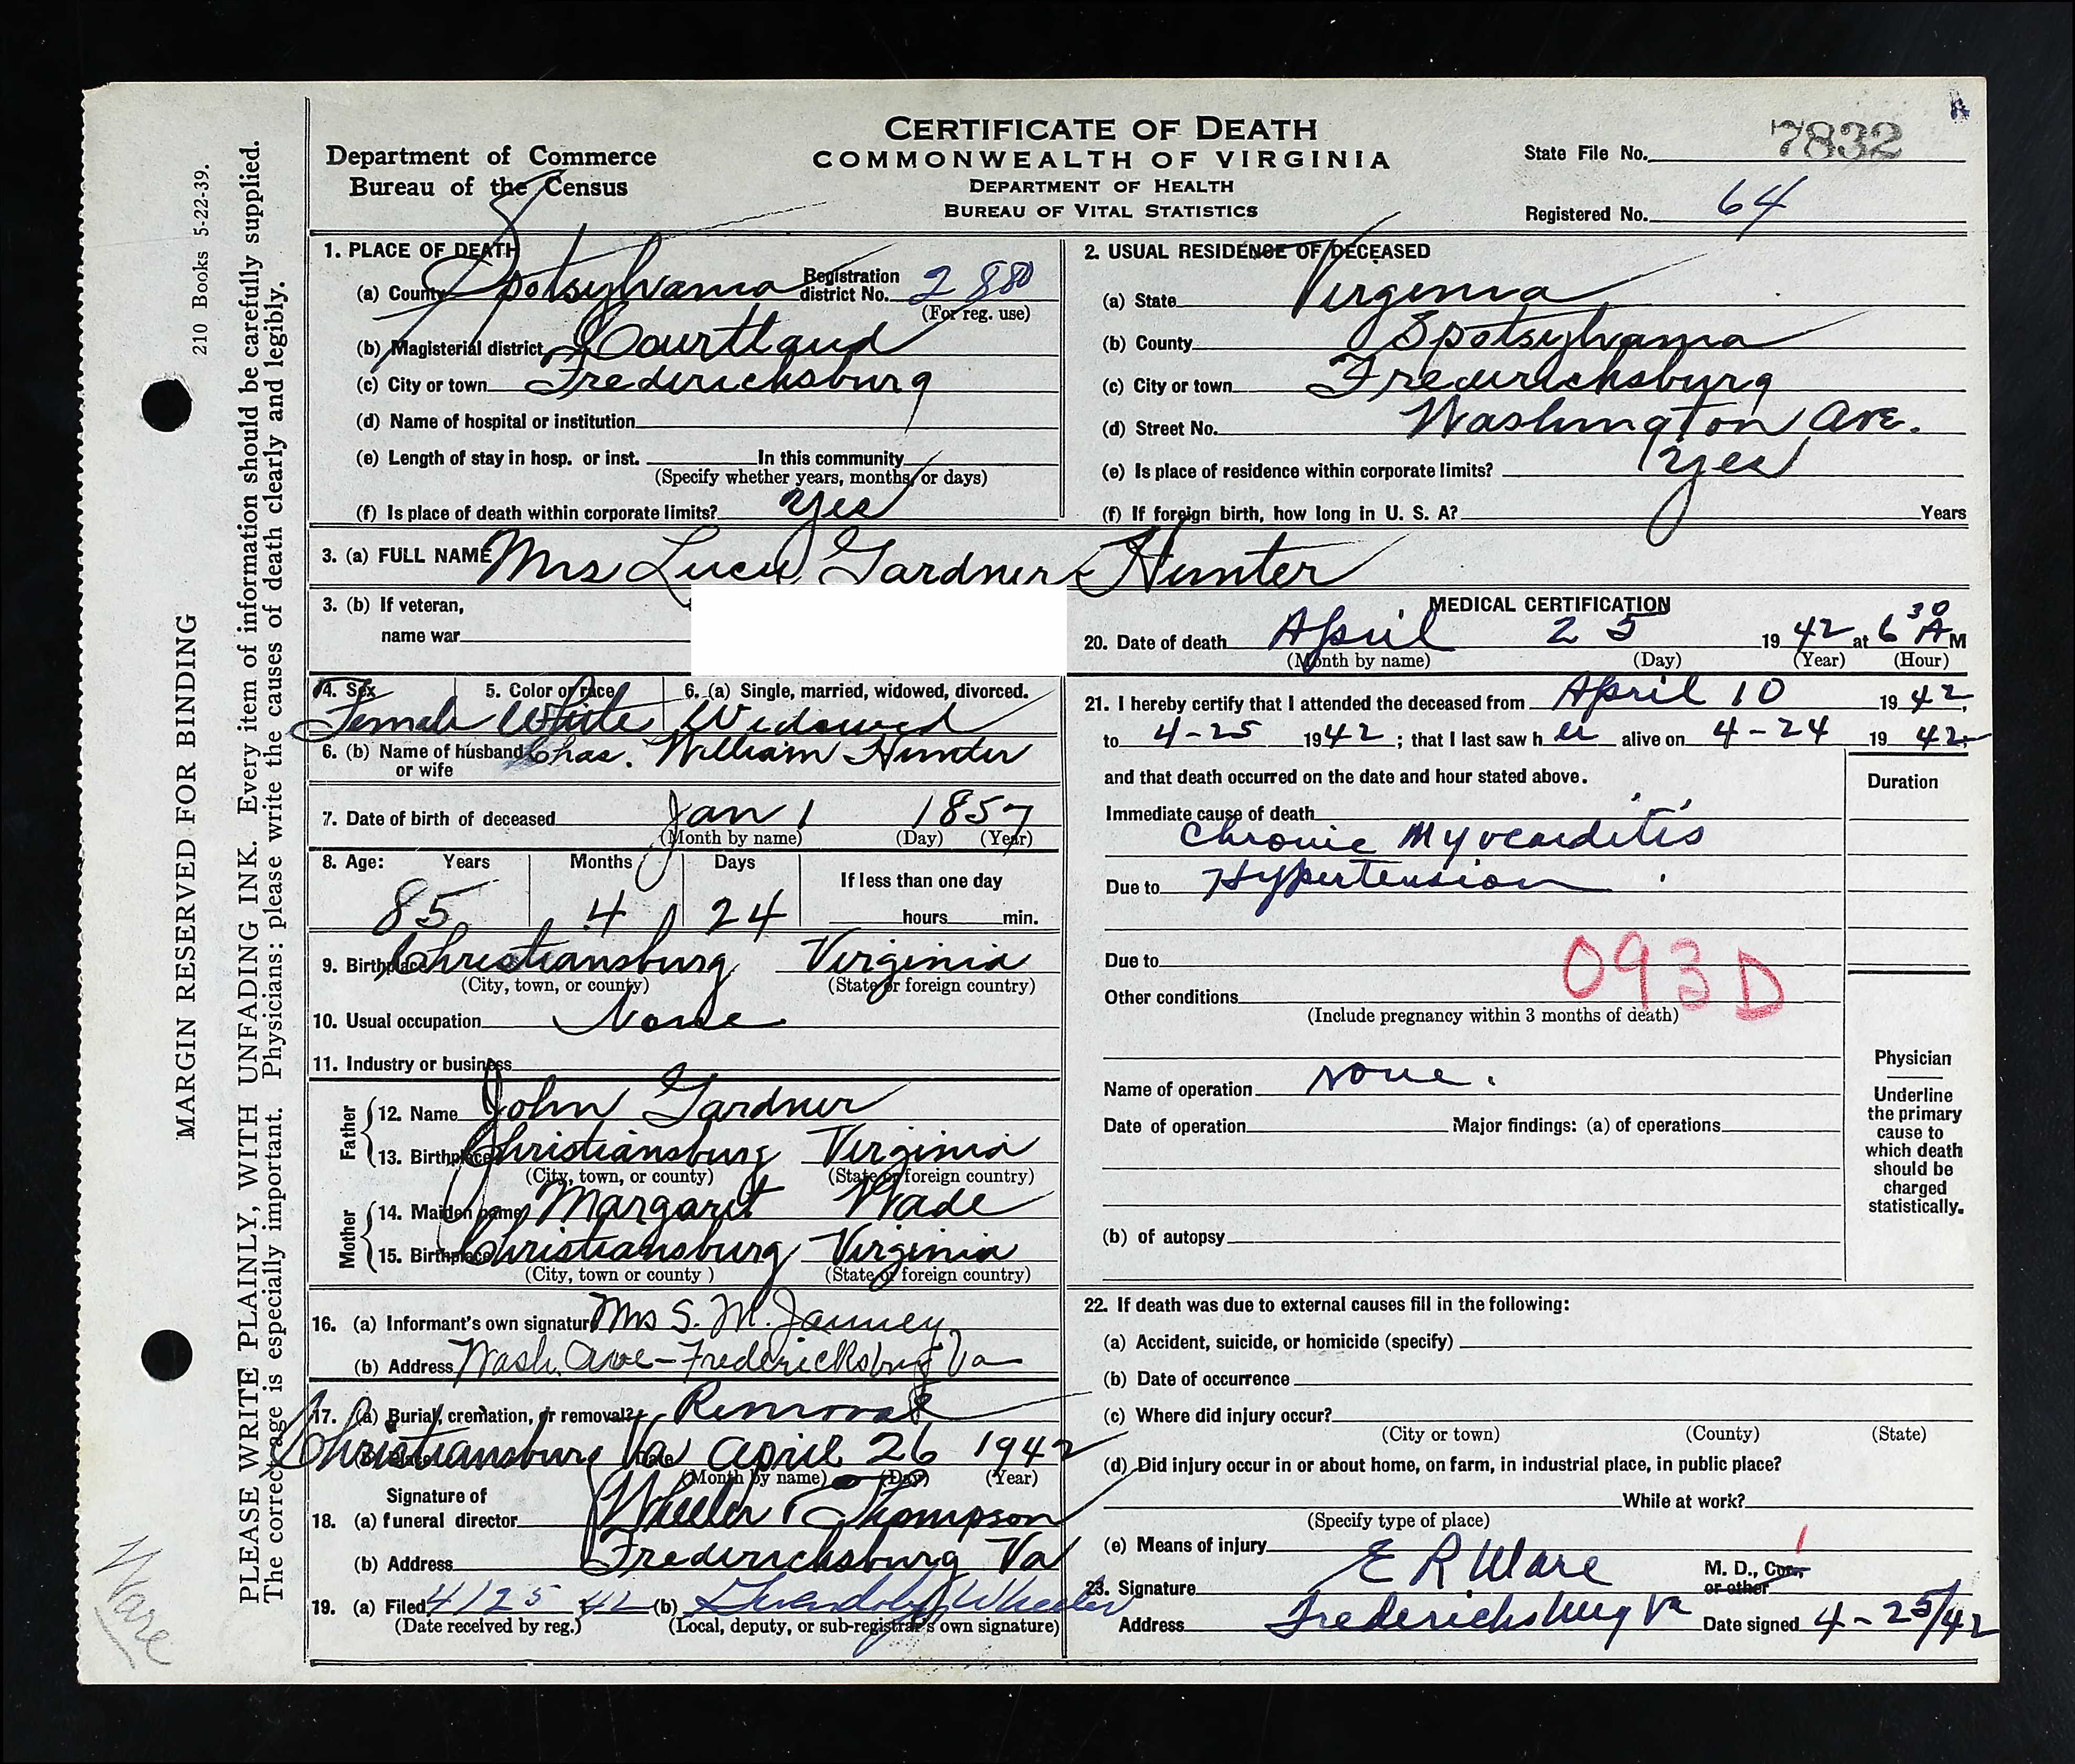 CERTIFICATE OF DEATH
COMMONWEALTH OF VIRGINIA
DEPARTMENT OF HEALTH
BUREAU OF VITAL STATISTICS
Department of Commerce
Bureau of the Census
State File No. 7832
Registered No. 64
210 Books 5-22-39.
MARGIN RESERVED FOR BINDING
PLEASE WRITE PLAINLY, WITH UNFADING INK. Every item of information should be carefully supplied.
The correct age is especially important. Physicians: please write the causes of death clearly and legibly.
Ware
1. PLACE OF DEATH
(a) County Spotsylvania Registration district No. 2880
(For reg. use)
(b) Magisterial district Courtland
(c) City or town Fredericksburg
(d) Name of hospital or institution
(e) Length of stay in hosp. or inst. In this community
(Specify whether years, months, or days)
(f) Is place of death within corporate limits? Yes
2. USUAL RESIDENCE OF DECEASED
(a) State Virginia
(b) County Spotsylvania
(c) City or town Fredericksburg
(d) Street No. Washington Ave.
(e) Is place of residence within corporate limits? Yes
(f) If foreign birth, how long in U. S. A? Years
3. (a) FULL NAME Mrs Lucie Gardner Hunter
3. (b) If veteran,
name war
4. Sex 5. Color or race 6. (a) Single, married, widowed, divorced.
Female White Widowed
6. (b) Name of husband or wife Chas. William Hunter
7. Date of birth of deceased Jan 1 1857
(Month by name) (Day) (Year)
8. Age: Years Months Days If less than one day
85 4 24 hours min.
9. Birthplace Christiansburg Virginia
(City, town, or county) (State or foreign country)
10. Usual occupation None
11. Industry or business
Father
12. Name John Gardner
13. Birthplace Christiansburg Virginia
(City, town, or county) (State or foreign country)
Mother
14. Maiden name Margaret Wade
15. Birthplace Christiansburg Virginia
(City, town or county ) (State or foreign country)
16. (a) Informant's own signature Mrs S. M. Janney
(b) Address Wash. Ave - Fredericksburg Va
17. (a) Burial, cremation, or removal? Removal
Christiansburg Va Date April 26 1942
(Month by name) (Day) (Year)
18. (a) Signature of funeral director Wheeler & Thompson
(b) Address Fredericksburg Va
19. (a) Filed 4/25 42 (b) Gwendolyn Wheeler
(Date received by reg.) (Local, deputy, or sub-registrar's own signature)
MEDICAL CERTIFICATION
20. Date of death April 25 1942 at 6 30 A M
(Month by name) (Day) (Year) (Hour)
21. I hereby certify that I attended the deceased from April 10 1942,
to 4-25 1942; that I last saw her alive on 4-24 1942
and that death occurred on the date and hour stated above.
Duration
Immediate cause of death
Chronic Myocarditis
Due to Hypertension
Due to
093D
Other conditions
(Include pregnancy within 3 months of death)
Name of operation None.
Date of operation Major findings: (a) of operations
(b) of autopsy
Physician
Underline
the primary
cause to
which death
should be
charged
statistically.
22. If death was due to external causes fill in the following:
(a) Accident, suicide, or homicide (specify)
(b) Date of occurrence
(c) Where did injury occur?
(City or town) (County) (State)
(d) Did injury occur in or about home, on farm, in industrial place, in public place?
While at work?
(Specify type of place)
(e) Means of injury
23. Signature E R Ware M. D., Cor., or other
Address Fredericksburg Va Date signed 4-25/42